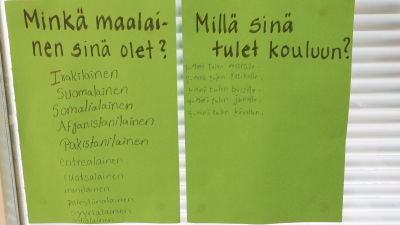 Minkä maalai-
nen sinä olet?
Irakilainen
Suomalainen
Somalialainen
Afganistanilainen
Pakistanilainen
eritrealainen
ruotsalainen
iranilainen
palestiinalainen
syyrialainen
Millä sinä
tulet kouluun?
1. Minä tulen metrolla.
2. Minä tulen
3. Minä tulen bussilla.
4. Minä tulen junalla.
5. Minä tulen kävellen.